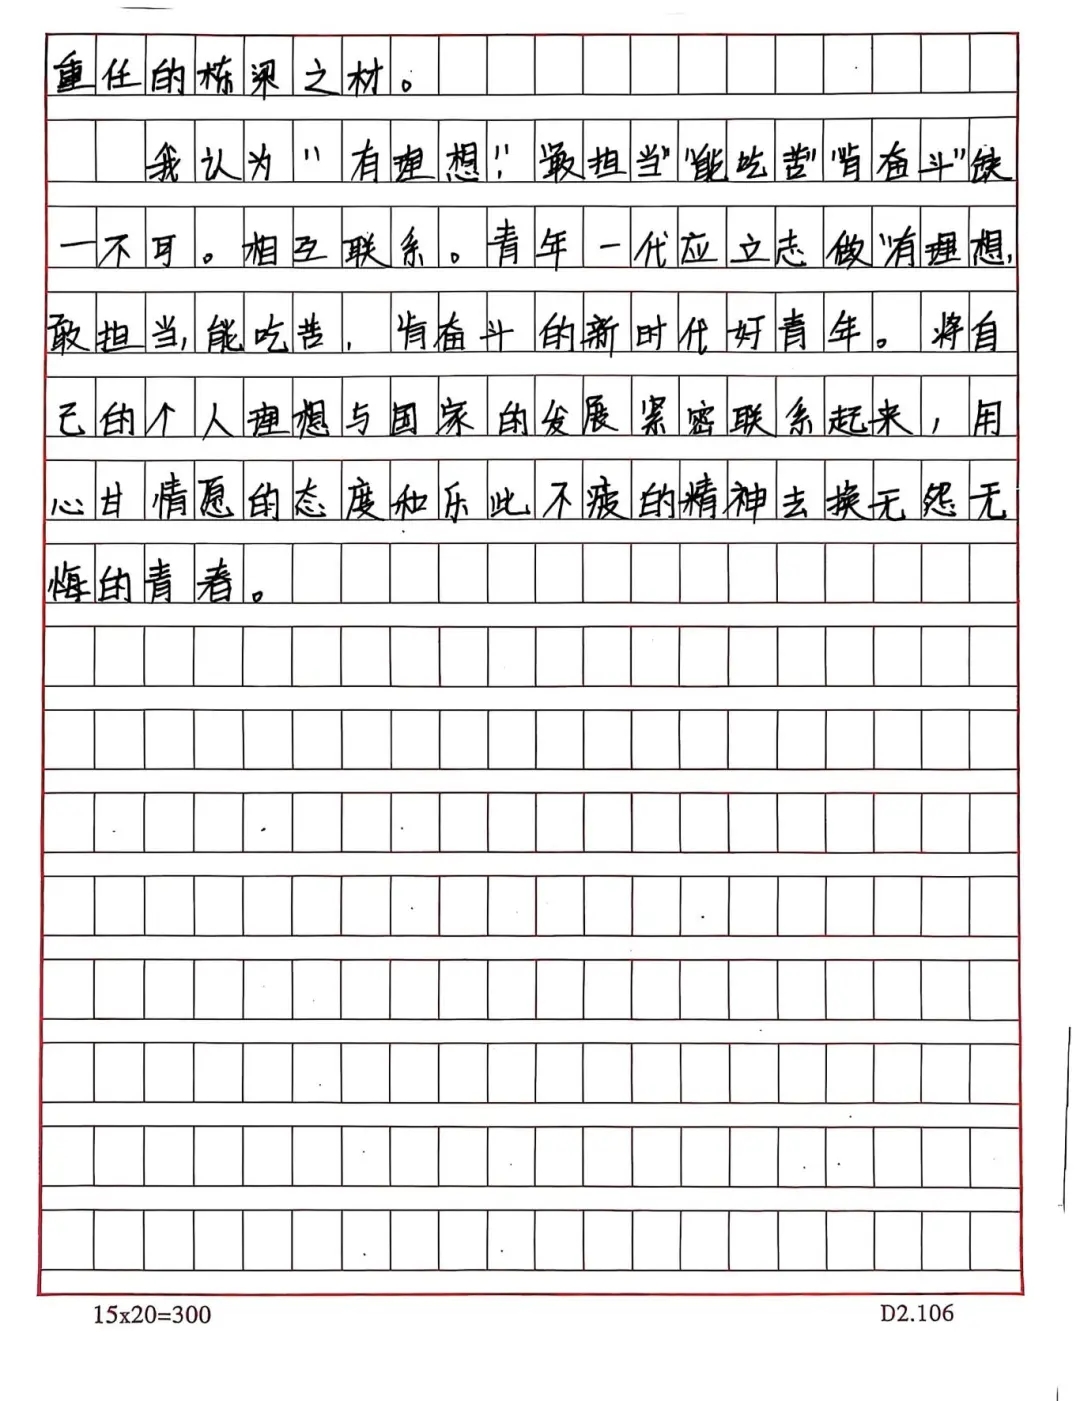 重任的栋梁之材。
我认为"有理想""敢担当""能吃苦""肯奋斗"缺
一不可。相互联系。青年一代应立志做"有理想,
敢担当,能吃苦,肯奋斗的新时代好青年。将自
己的个人理想与国家的发展紧密联系起来,用
心甘情愿的态度和乐此不疲的精神去换无怨无
悔的青春。
15x20=300 D2.106